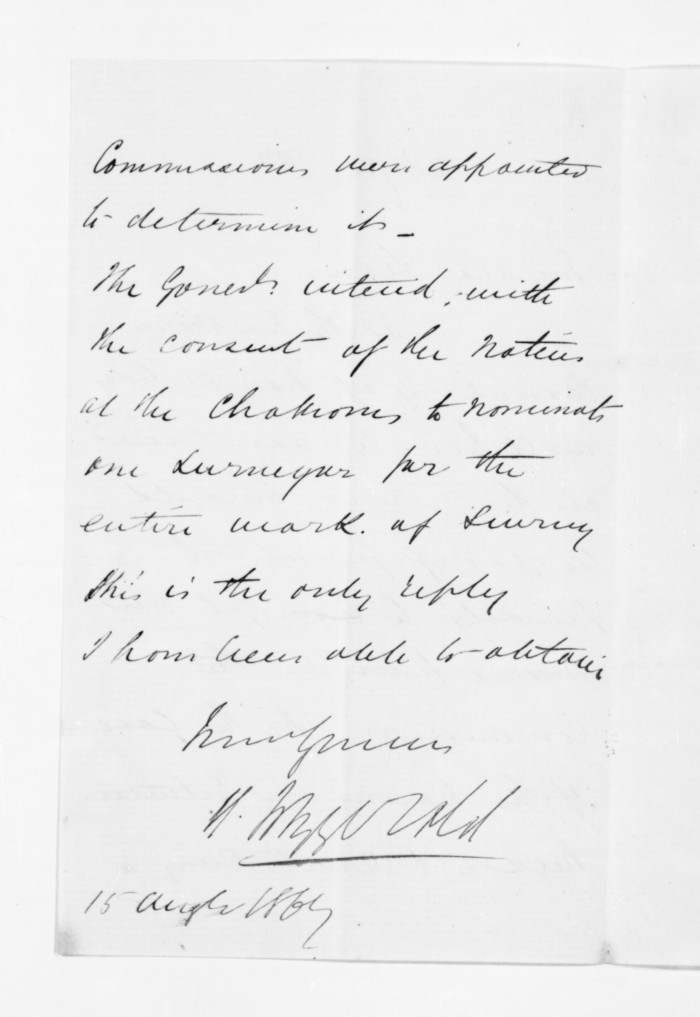 Commissioners were appointed
to determine it –
The Govnedt. intend, with
the consent of the Natives
at the Chathams to nominate
one Surveyor for the
entire work. of Survey
This is the only reply
I have been able to obtain
Yours
15 Augt 1867